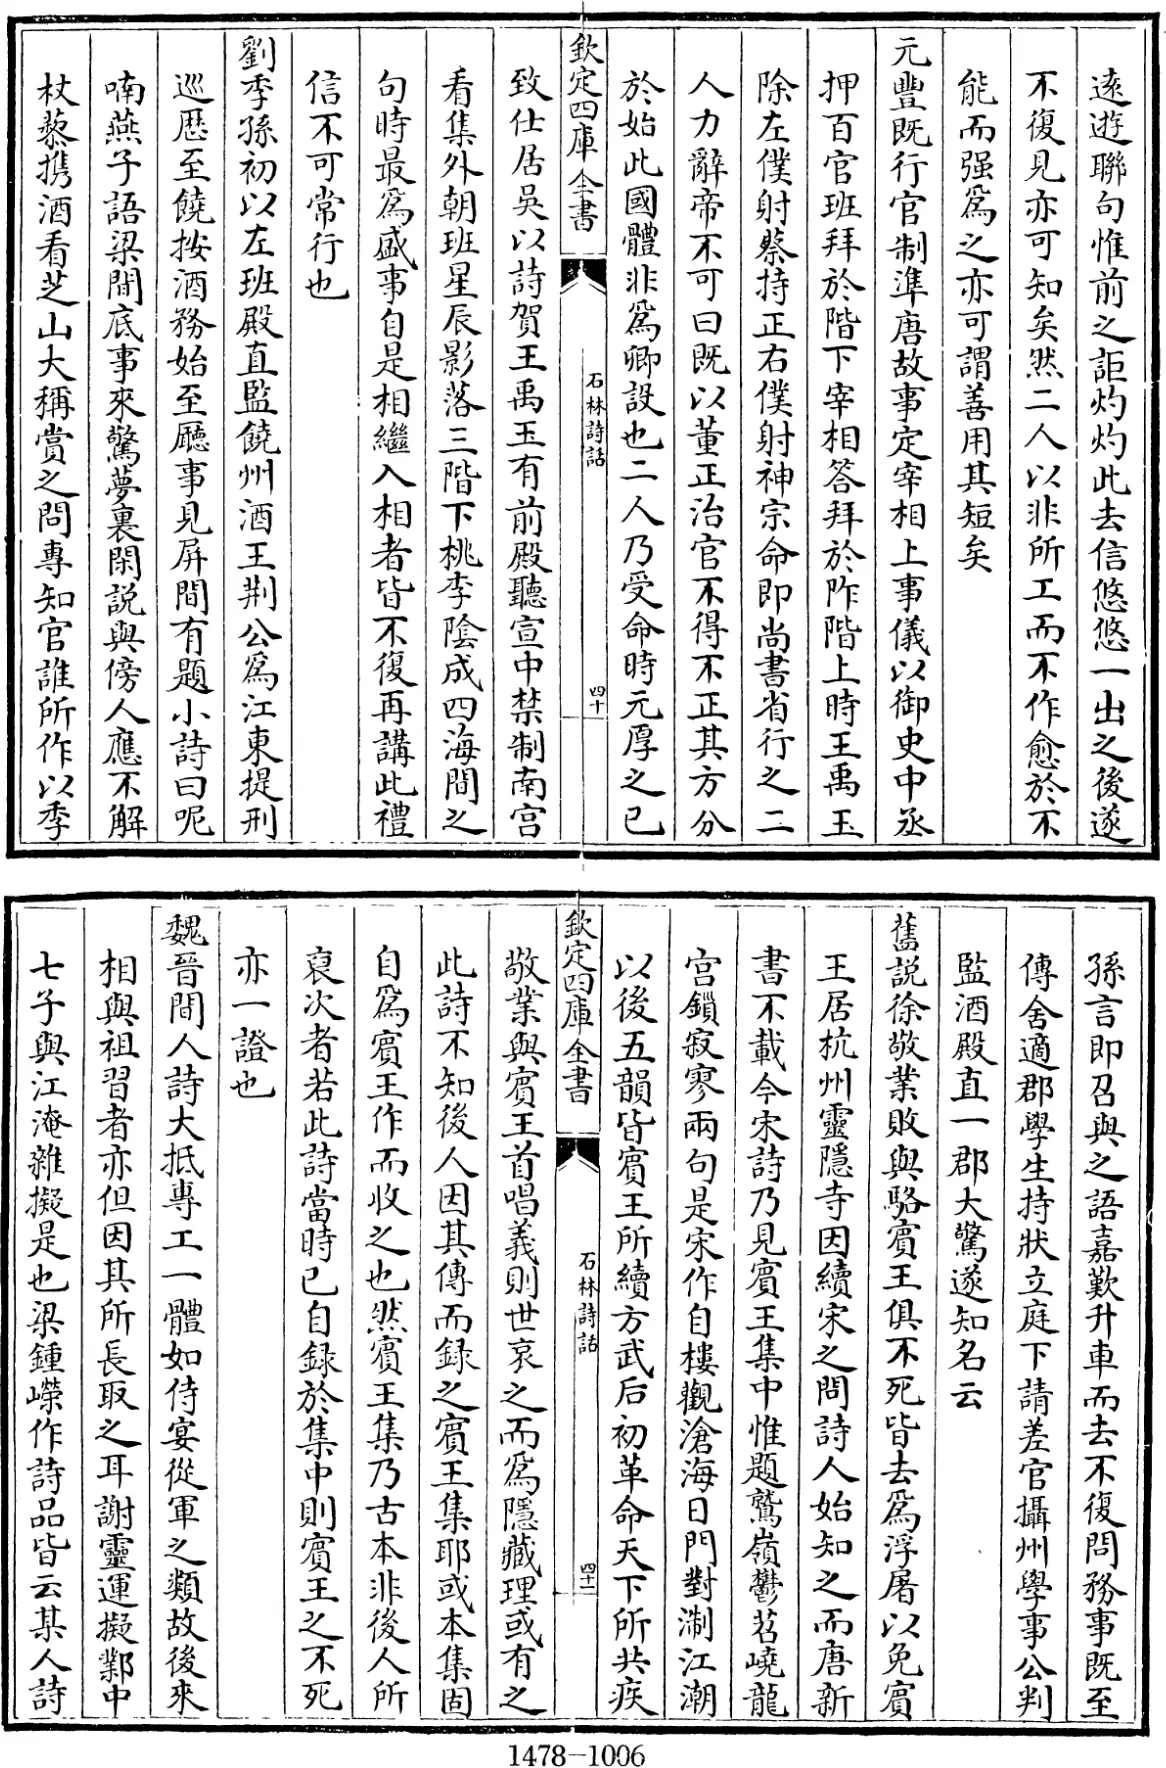 遠遊聯句惟前之詎灼灼此去信悠悠一出之後遂
不復見亦可知矣然二人以非所工而不作愈於不
能而强為之亦可謂善用其短矣
元豐既行官制準唐故事定宰相上事儀以御史中丞
押百官班拜於階下宰相答拜於阼階上時王禹玉
除左僕射蔡持正右僕射神宗命即尚書省行之二
人力辭帝不可曰既以董正治官不得不正其方分
於始此國體非為卿設也二人乃受命時元厚之已
欽定四庫全書
石林詩話
四十
致仕居吴以詩賀王禹玉有前殿聽宣中禁制南宫
看集外朝班星辰影落三階下桃李陰成四海間之
句時最為盛事自是相繼入相者皆不復再講此禮
信不可常行也
劉季孫初以左班殿直監饒州酒王荆公為江東提刑
巡歷至饒按酒務始至廳事見屏間有題小詩曰呢
喃燕子語梁間底事來驚夢裏閑説與傍人應不解
杖藜携酒看芝山大稱賞之問專知官誰所作以季
孫言即召與之語嘉歎升車而去不復問務事既至
傳舍適郡學生持狀立庭下請差官攝州學事公判
監酒殿直一郡大驚遂知名云
舊説徐敬業敗與駱賓王俱不死皆去為浮屠以免賓
王居杭州靈隱寺因續宋之問詩人始知之而唐新
書不載今宋詩乃見賓王集中惟題鷲嶺鬱岧嶢龍
宫鎖寂寥兩句是宋作自樓觀滄海日門對淛江潮
以後五韻皆賓王所續方武后初革命天下所共疾
欽定四庫全書
石林詩話
四十一
敬業與賓王首唱義則世哀之而為隱藏理或有之
此詩不知後人因其傳而録之賓王集耶或本集固
自為賓王作而收之也然賓王集乃古本非後人所
裒次者若此詩當時已自録於集中則賓王之不死
亦一證也
魏晉間人詩大抵專工一體如侍宴從軍之類故後來
相與祖習者亦但因其所長取之耳謝靈運擬鄴中
七子與江淹雜擬是也梁鍾嶸作詩品皆云某人詩
1478-1006